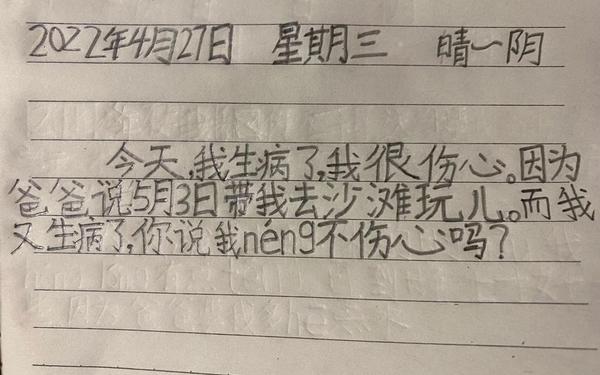 2022年4月27日 星期三 晴一阴
今天,我生病了,我很伤心。因为
爸爸说5月3日带我去沙滩玩儿。而我
又生病了,你说我néng不伤心吗?